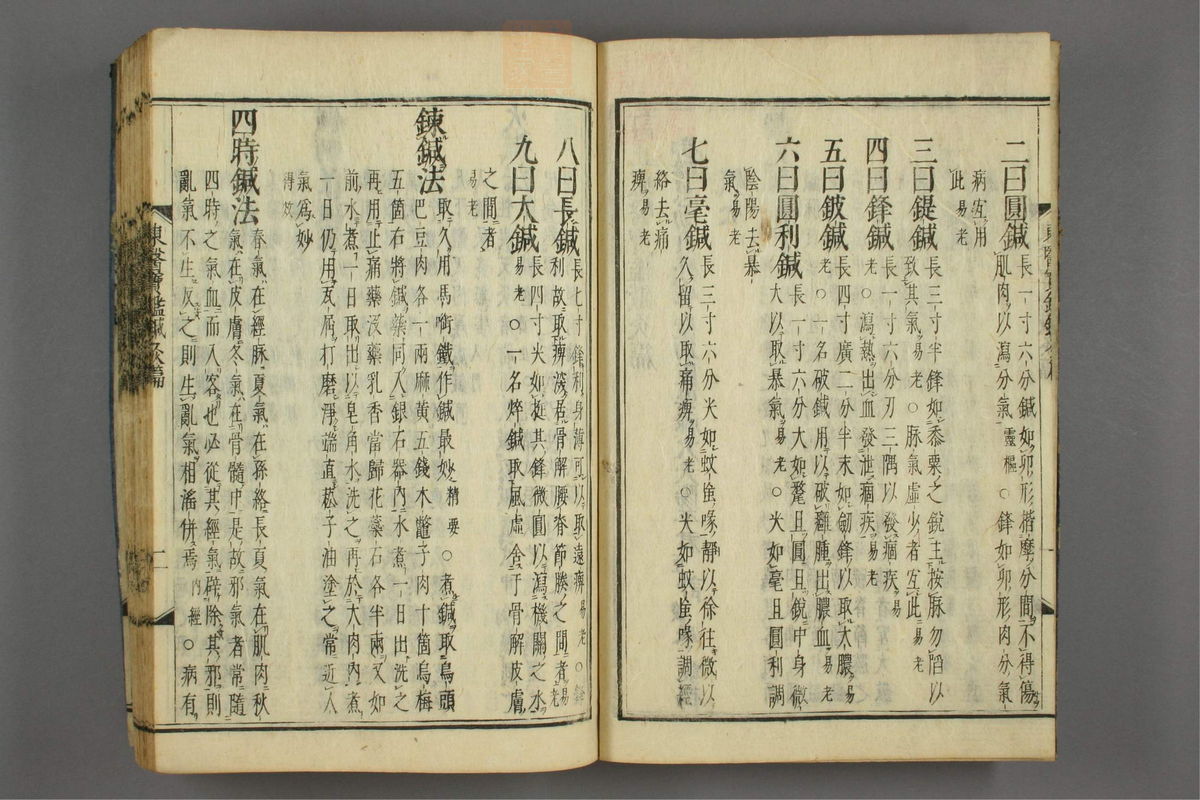 二曰圓鍼長一寸六分鍼如卵形揩摩分間不得傷
肌肉以瀉分氣靈樞○鋒如卵形肉分氣
病宜用
此易老
三曰鍉鍼長三寸半鋒如黍粟之銳主按脉勿陷以
致其氣易老○脉氣虛少者宜此易老
四曰鋒鍼長一寸六分刃三隅以發痼疾易
老○瀉熱出血發泄痼疾易老
五曰鈹鍼長四寸廣二分半末如劒鋒以取大膿易
老○一名破鍼用以破癰腫出膿血易老
六曰圓利鍼長一寸六分大如氂且圓且銳中身微
大以取暴氣易老○尖如毫且圓利調
陰陽去暴
氣易老
七曰毫鍼長三寸六分尖如蚊虻喙靜以徐往微以
久留以取痛痺易老○尖如蚊虻喙調經
絡去痛
痺易老
八曰長鍼長七寸鋒利身薄可以取遠痺易老○鋒
利故取痺深居骨解腰脊節腠之間者易老
九曰大鍼長四寸尖如挺其鋒微圓以瀉機關之水
易老○一名焠鍼取風虛舍于骨解皮膚
之間者
易老
鍊鍼法取久用馬啣鐵作鍼最妙精要○煮鍼取烏頭
巴豆肉各一兩麻黃五錢木鼈子肉十箇烏梅
五箇右將鍼藥同入銀石器內水煮一日出洗之
再用止痛藥沒藥乳香當歸花蘂石各半兩又如
前水煮一日取出以皂角水洗之再於犬肉內煮
一日仍用瓦屑打磨淨端直菘子油塗之常近人
氣爲妙
得效
四時鍼法春氣在經脉夏氣在孫絡長夏氣在肌肉秋
氣在皮膚冬氣在骨髓中是故邪氣者常隨
四時之氣血而入客也必從其經氣辟除其邪則
亂氣不生反之則生亂氣相滛併焉內經○病有
東醫寶鑑鍼灸篇
二